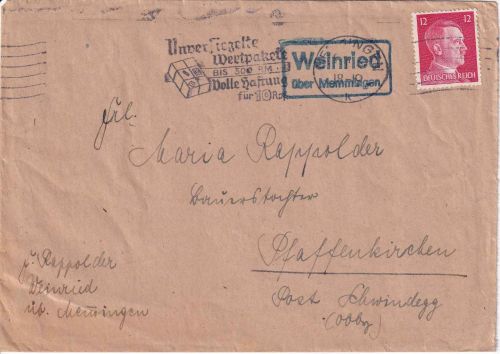 Unversiegelte
Wertpakete
BIS 500 RM
Volle Haftung
für 10 Rpf
Weinried
über Memmingen
MEMMINGEN
k
12 12
DEUTSCHES REICH
Frl.
Maria Rappolder
Bauerstochter
Pfaffenkirchen
Post Schwindegg
(Obby)
Rappolder
Weinried
üb. Memmingen